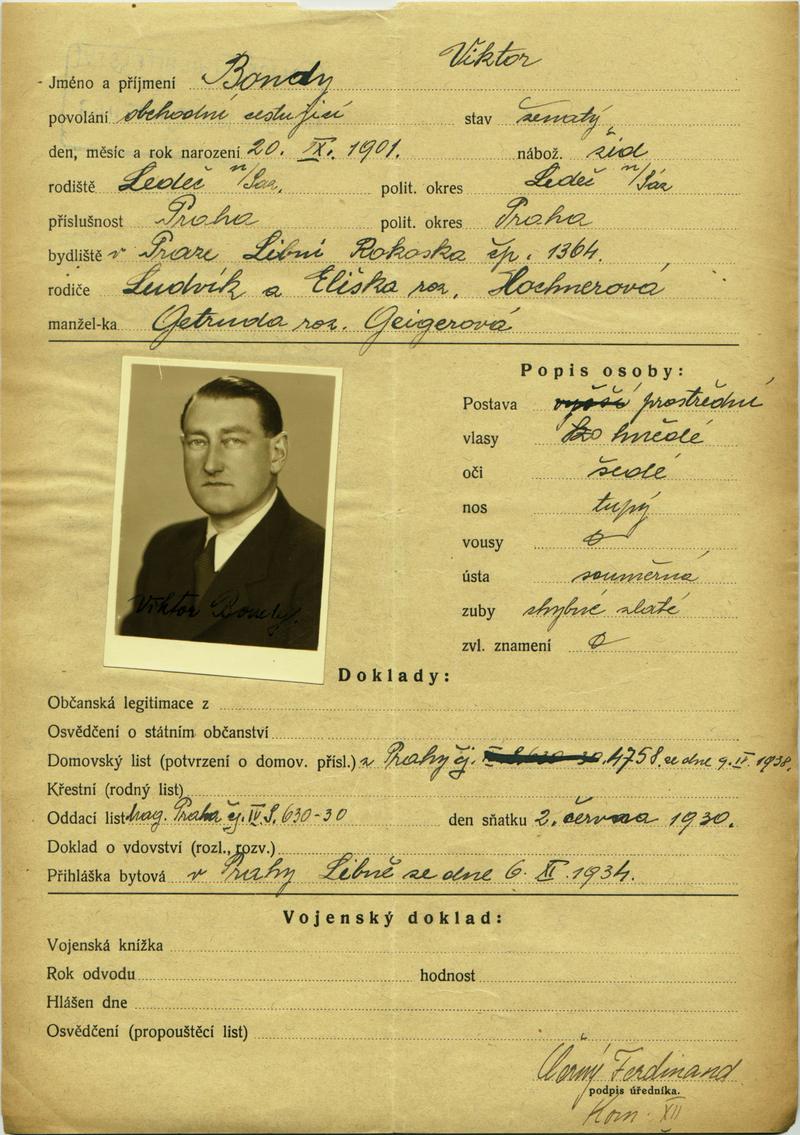 Viktor
Jméno a příjmení Bondy
povolání obchodní cestující stav ženatý
den, měsíc a rok narození 20. IX. 1901. nábož. žid
rodiště Ledeč n/Sáz. polit. okres Ledeč n/Sáz
příslušnost Praha polit. okres Praha
bydliště v Praze Libni Rokoska čp. 1364.
rodiče Ludvík a Eliška roz. Hochnerová
manžel-ka Getruda roz. Geigerová
Popis osoby:
Postava vyšší prostřední
vlasy hnědé
oči šedé
nos tupý
vousy 0
ústa souměrná
zuby chybné zlaté
zvl. znamení 0
Viktor Bondy.
Doklady:
Občanská legitimace z
Osvědčení o státním občanství
Domovský list (potvrzení o domov. přísl.) z Prahy čj. 4758. ze dne 9. II. 1938.
Křestní (rodný list)
Oddací list Mag. Praha čj. IV S. 630-30 den sňatku 2. června 1930.
Doklad o vdovství (rozl., rozv.)
Přihláška bytová v Prahy Libně ze dne 6. XI. 1934.
Vojenský doklad:
Vojenská knížka
Rok odvodu hodnost
Hlášen dne
Osvědčení (propouštěcí list)
Černý Ferdinand
podpis úředníka.
Kom. XII